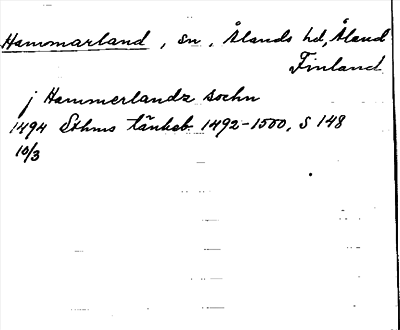 Hammarland, sn, Ålands hd, Åland
Finland
j Hammerlandz sochn
1494 Sthms tänkeb. 1492-1500, S 148
10/3